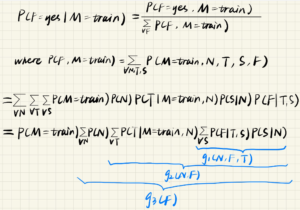 P(F=yes | M=train) = P(F=yes, M=train) / Σ∀F P(F, M=train)
where P(F, M=train) = Σ∀N,T,S P(M=train, N, T, S, F)
= Σ∀N Σ∀T Σ∀S P(M=train) P(N) P(T | M=train, N) P(S|N) P(F|T,S)
= P(M=train) Σ∀N P(N) Σ∀T P(T | M=train, N) Σ∀S P(F|T,S) P(S|N)
g₁(N,F,T)
g₂(N,F)
g₃(F)